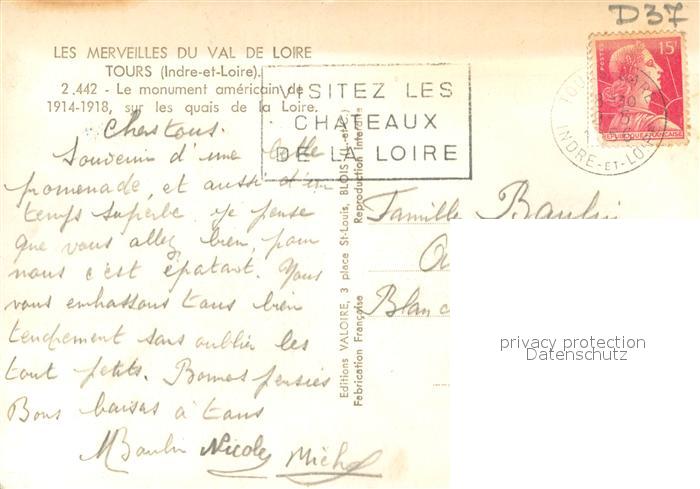 D37
LES MERVEILLES DU VAL DE LOIRE
TOURS (Indre-et-Loire).
2.442 - Le monument américain de
1914-1918, sur les quais de la Loire.
VISITEZ LES
CHATEAUX
DE LA LOIRE
POSTES
15F
REPUBLIQUE FRANÇAISE
TOU
INDRE-ET-LOI
Chers tous.
Souvenir d'une belle
promenade, et aussi d'un
temps superbe je pense
que vous allez bien, pour
nous c'est épatant. Nous
vous embrassons tous bien
tendrement sans oublier les
tout petits. Bonnes pensées
Bons baisers à tous
MBaulin Nicole Michel
Editions VALOIRE, 3 place St-Louis, BLOIS (L.-et-C.)
Fabrication Française Reproduction Interdite
Famille Baulin
Blanc
privacy protection
Datenschutz